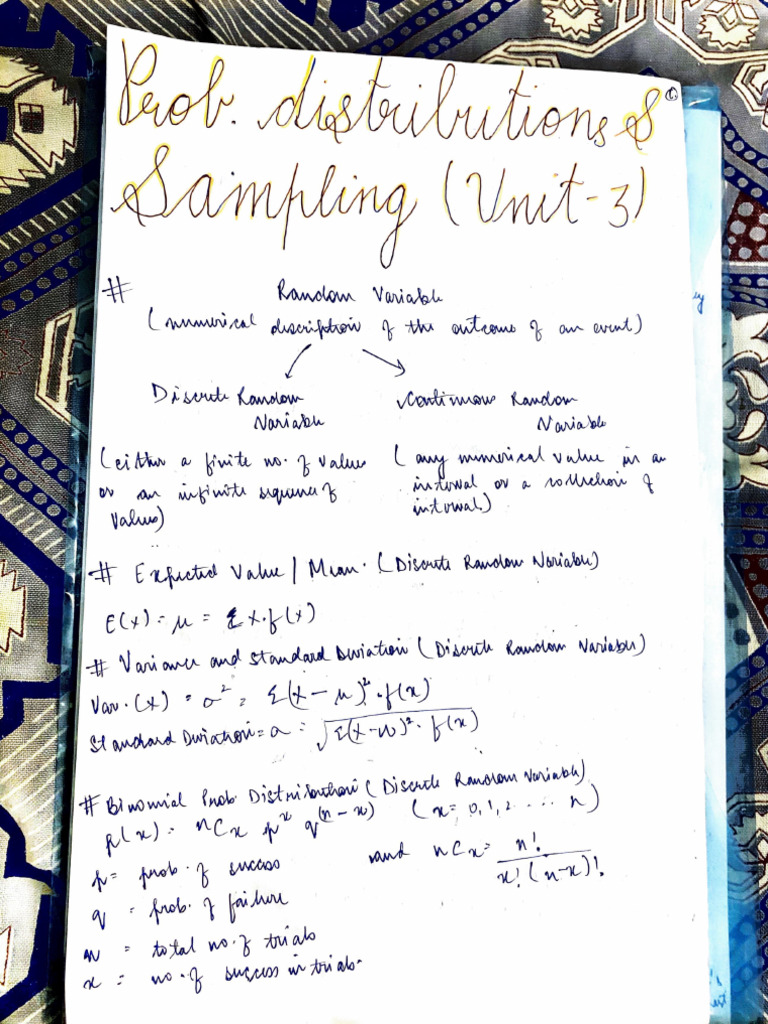 Prob. distributions &
Sampling (Unit-3)
# Random Variable
(numerical description of the outcome of an event)
Discrete Random Variable
(either a finite no. of values
or an infinite sequence of
values)
Continuous Random Variable
(any numerical value in an
interval or a collection of
interval)
# Expected Value / Mean. (Discrete Random Variable)
E(x) = μ = Σ x.f(x)
# Variance and Standard Deviation (Discrete Random Variable)
Var.(x) = σ² = Σ(x - μ)².f(x)
Standard Deviation = σ = √Σ(x-μ)². f(x)
# Binomial Prob Distribution (Discrete Random Variable)
p(x) = nCx pˣ q⁽ⁿ⁻ˣ⁾ (x = 0, 1, 2 .... n)
and nCx = n! / x!(n-x)!
p = prob. of success
q = prob. of failure
n = total no. of trials
x = no. of success in trials.